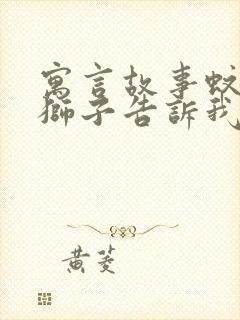 寓言故事蚊
獅子告訴我
黄菱